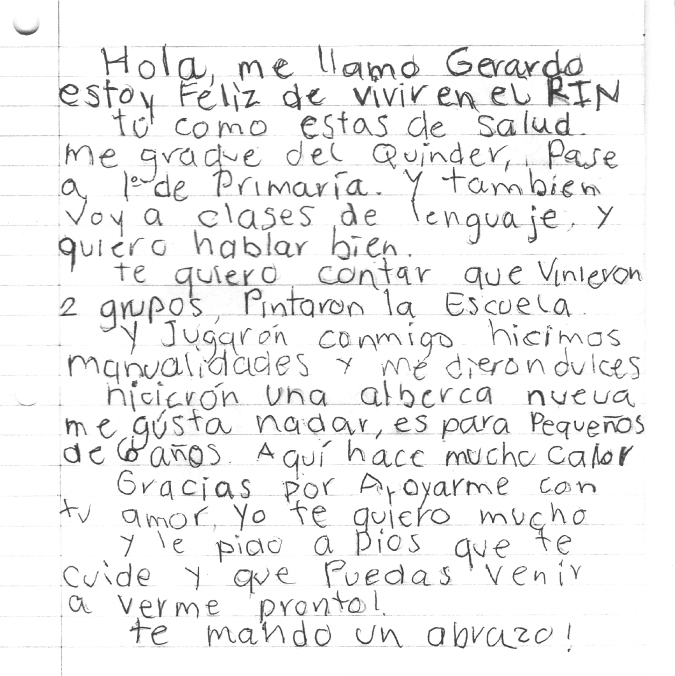 Hola, me llamo Gerardo
estoy Feliz de vivir en el RIN
tú como estas de salud.
me gradue del Quinder, Pase
a 1º de Primaria. Y tambien
voy a clases de lenguaje, y
quiero hablar bien.
te quiero contar que Vinieron
2 grupos, Pintaron la Escuela.
Y Jugarón conmigo hicimos
manualidades y me dieron dulces
hicierón una alberca nueva
me gústa nadar, es para Pequeños
de 6 años. Aquí hace mucho Calor
Gracias por Apoyarme con
tu amor, Yo te quiero mucho
y le pido a Dios que te
cuide y que Puedas venir
a verme pronto!.
te mando un abrazo!